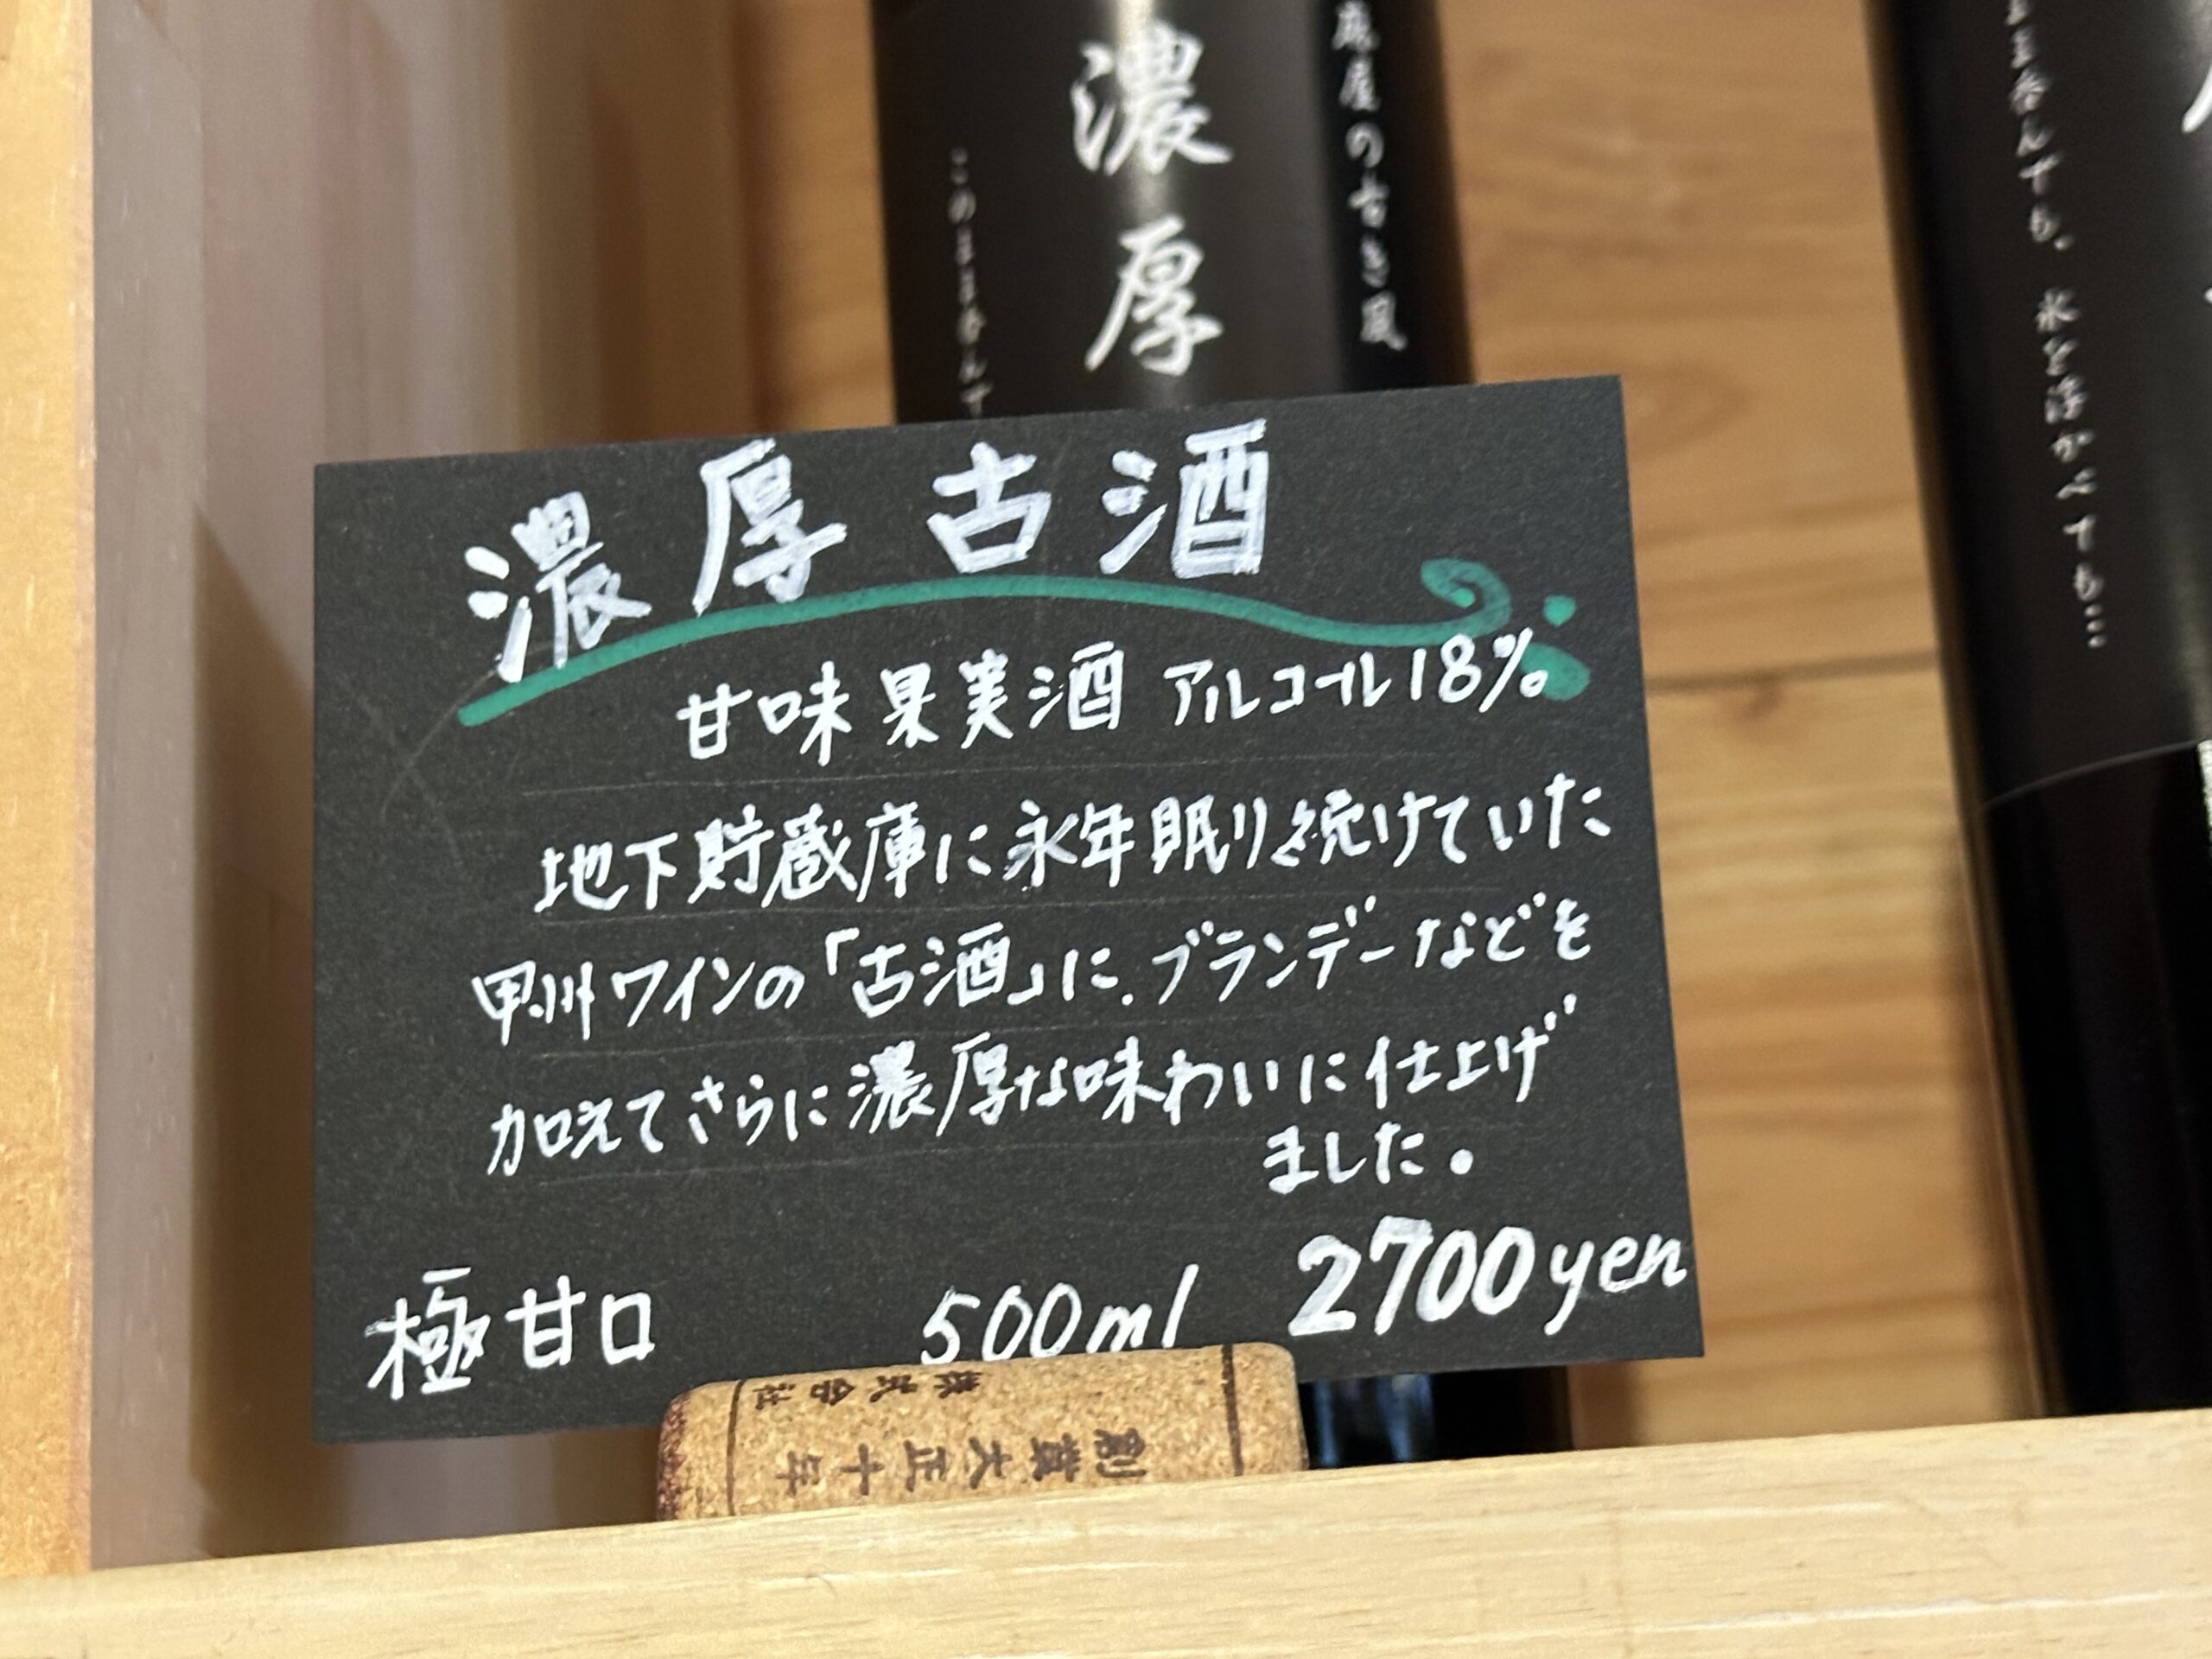 濃厚
の古き風
このまま呑んで
ま呑んでも。氷を浮かべても…
濃厚古酒
甘味果実酒 アルコール18%
地下貯蔵庫に永年眠り続けていた
甲州ワインの「古酒」に、ブランデーなどを
加えてさらに濃厚な味わいに仕上げ
ました。
極甘口 500ml 2700yen
株式会社
創業大正十年